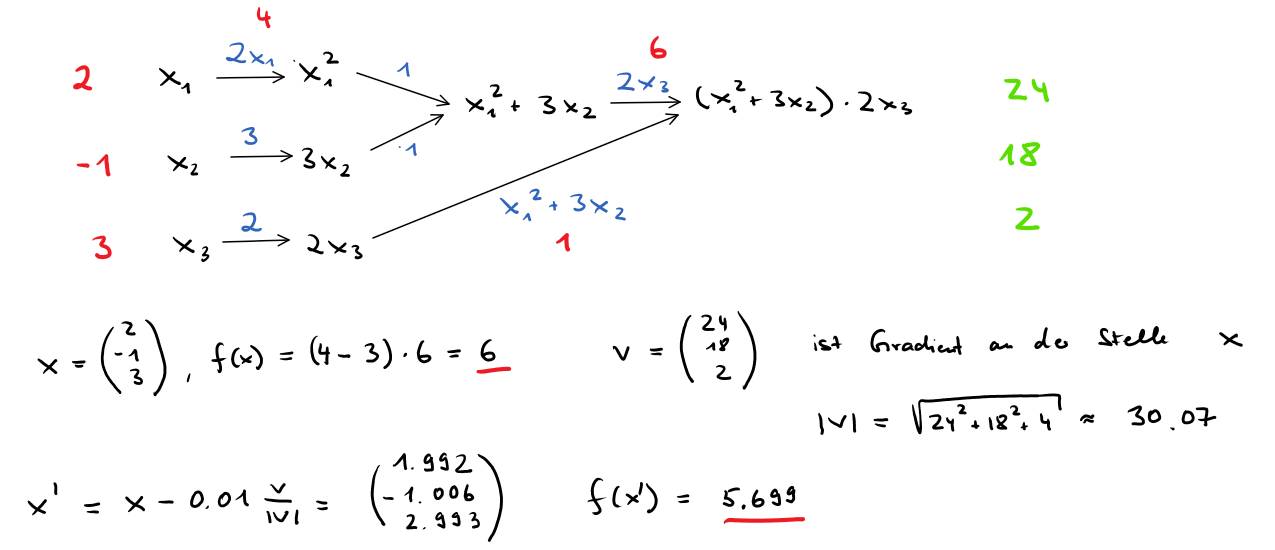 4
2x₁ 6
2 x₁ → x₁² 1 2x₃ 24
x₁² + 3x₂ → (x₁² + 3x₂) · 2x₃
-1 x₂ 3 → 3x₂ 1 18
x₁² + 3x₂
3 x₃ 2 → 2x₃ 1 2
x = (2 -1 3), f(x) = (4 - 3) · 6 = 6 v = (24 18 2) ist Gradient an der Stelle x
|v| = √(24² + 18² + 4) ≈ 30.07
x' = x - 0.01 v/|v| = (1.992 -1.006 2.993) f(x') = 5.699